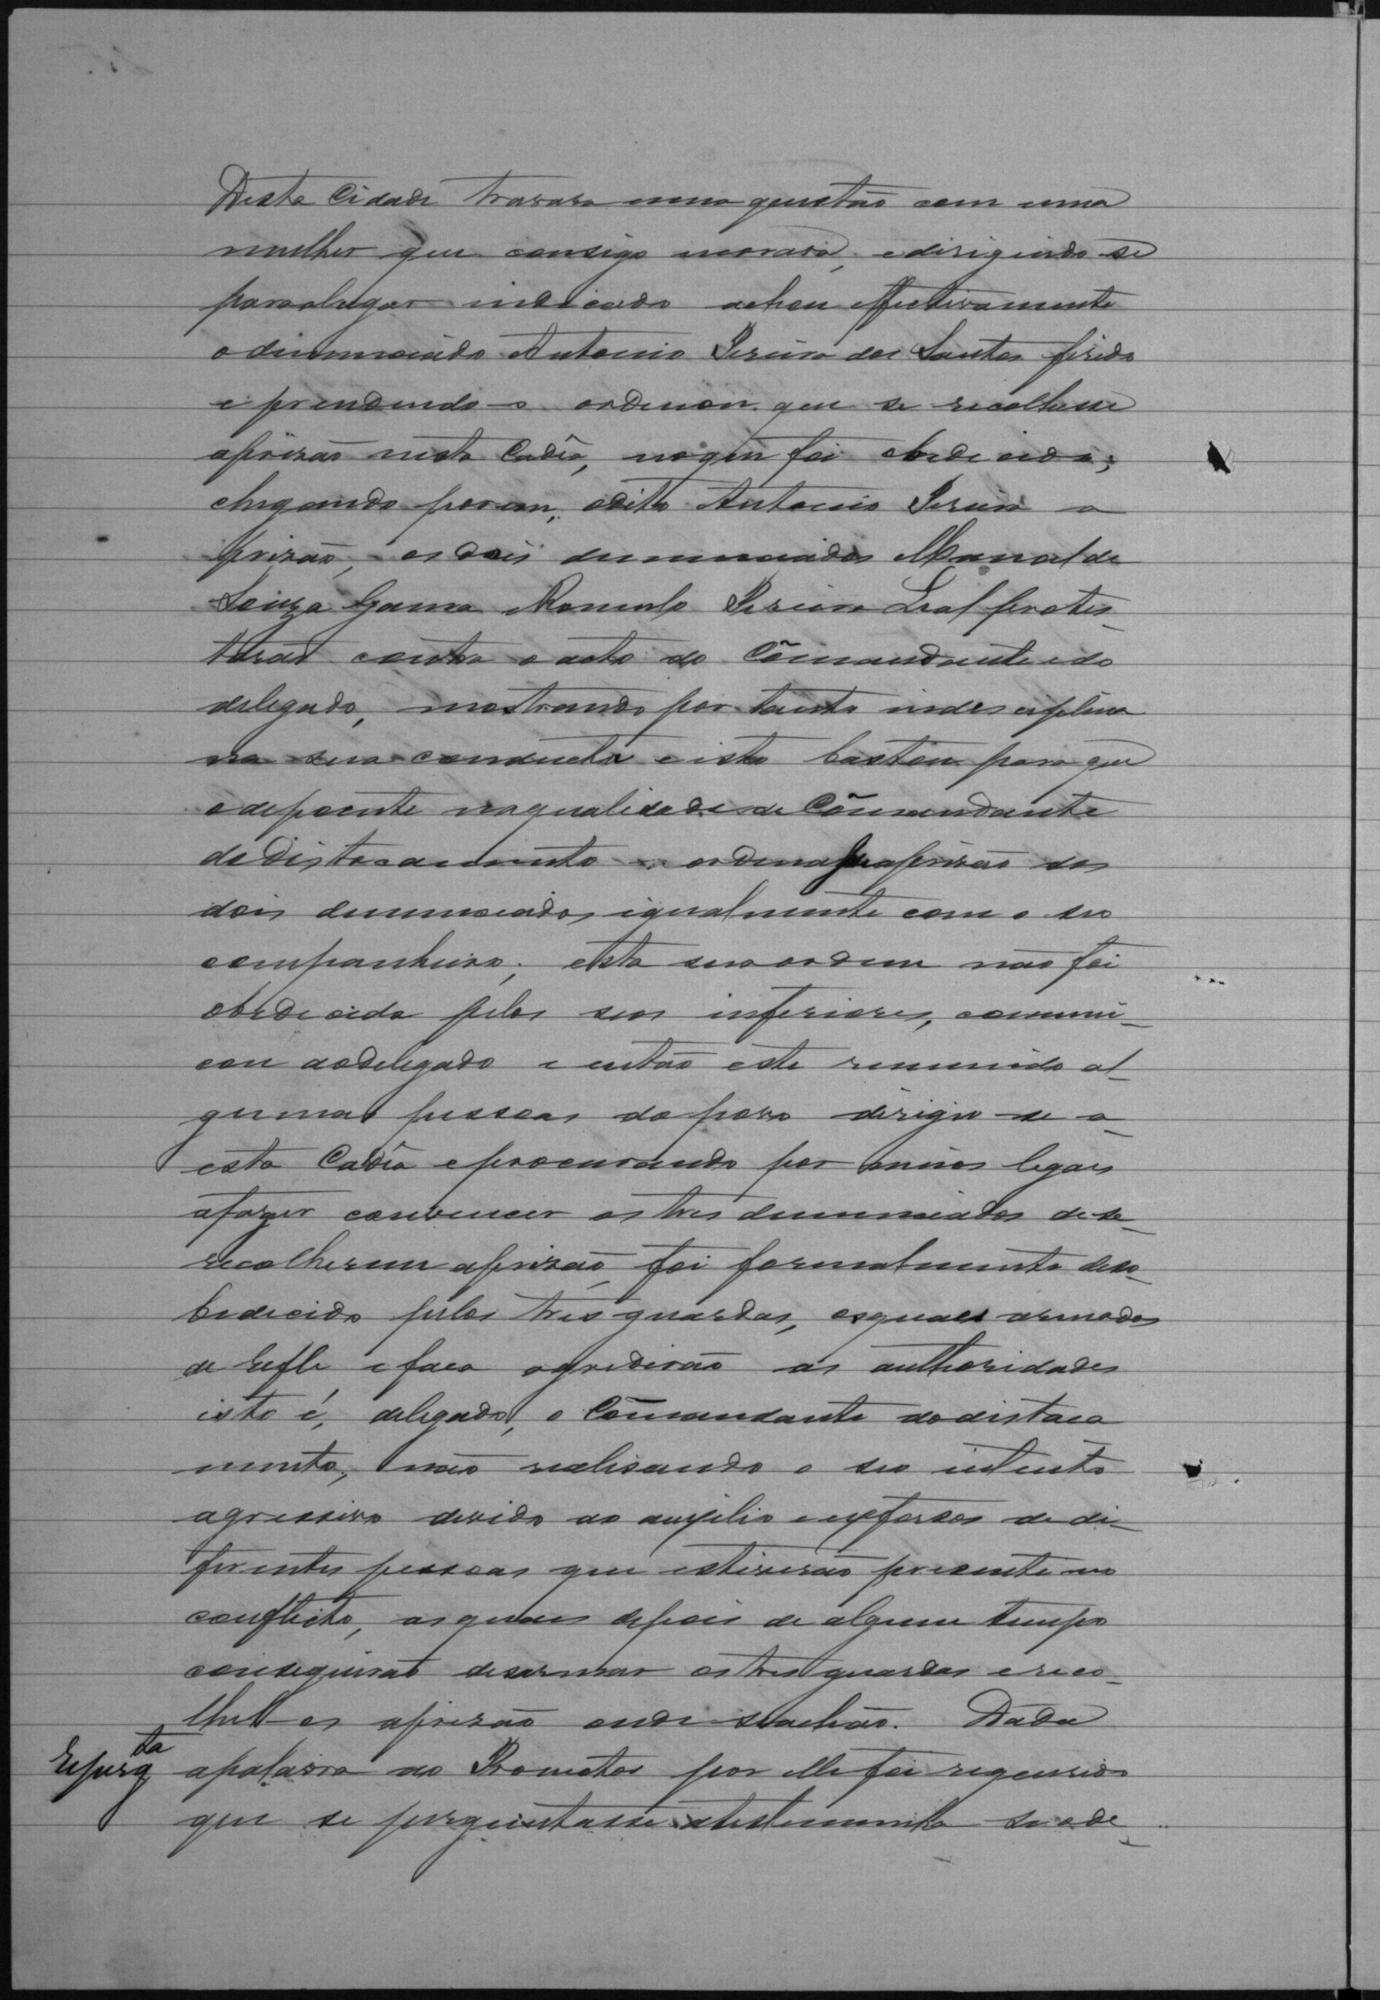 Desta Cidade travara uma questão com uma
mulher que consigo morava, e dirigindo-se
para o lugar indicado achou effectivamente
o dinunciado Antonio Pereira dos Santos ferido
e prendendo-o ordenou que se recolhesse
a prizão nesta Cadêa, no que foi obedecido;
chegando porem, o dito Antonio Pereira a
prizão, os dois denunciados Manoel de
Souza Gama Romulo Pereira Leal protes_
tarão contra o acto do Cõmandante e do
delegado, mostrando por tanto indesciplina
na sua conducta e isto bastou para que
o depoente na qualidade de Cõmandante
do Distacamento ordenasse a prizão dos
dois denunciados igualmente com o seo
companheiro; esta sua ordem não foi
obedecida pelos seos inferiores, communi_
cou ao delegado e então este reunindo al_
gumas pessoas do povo dirigio-se a
esta Cadêa e procurando por meios legaes
a fazer convencer os tres denunciados de se_
recolherem a prizão, foi formalmente deso_
bedecido pelos tres guardas, os quaes armados
de refle e faca agredirão as authoridades
isto é, delegado, e Cõmandante do distaca
mento, não realisando o seo intento
agressivo devido ao auxilio e exforsos de di_
ferentes pessoas que estiverão presente no
conflicto, as quaes depois de algum tempo
conseguirão desarmar os tres guardas e reco_
lhel-os a prizão onde se achão. Dada
a palavra ao Promotor por elle foi requerido
Reperg ta
que se perguntasse a testemunha se o de_